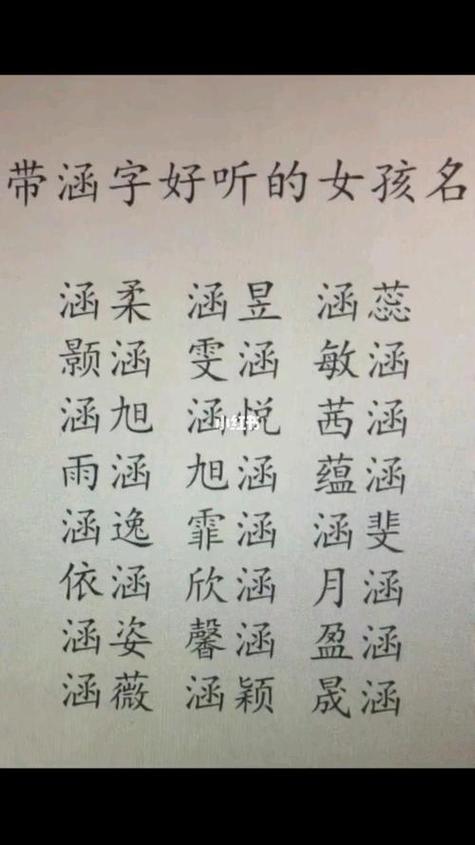 带涵字好听的女孩名
涵柔 涵昱 涵蕊
颢涵 雯涵 敏涵
涵旭 涵悦 茜涵
小红书
雨涵 旭涵 蕴涵
涵逸 霏涵 涵斐
依涵 欣涵 月涵
涵姿 馨涵 盈涵
涵薇 涵颖 晟涵